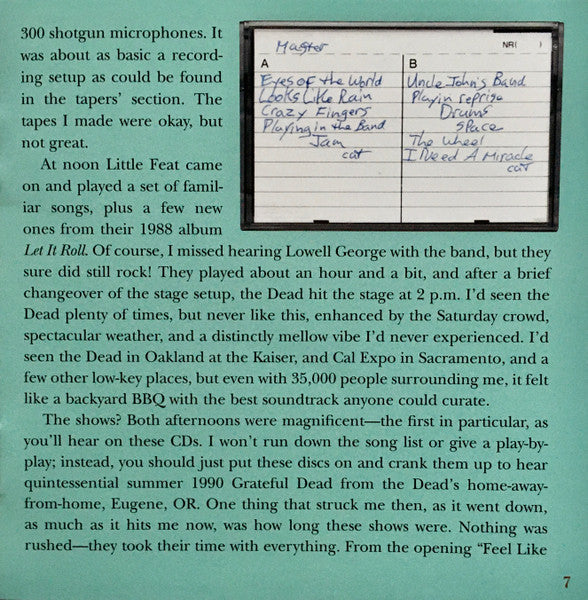 300 shotgun microphones. It
was about as basic a record-
ing setup as could be found
in the tapers' section. The
tapes I made were okay, but
not great.
At noon Little Feat came
on and played a set of famil-
iar songs, plus a few new
ones from their 1988 album
Master
NR(   )
A
Eyes of the World
Looks Like Rain
Crazy Fingers
Playing in the Band
Jam
cut
B
Uncle John's Band
Playin reprise
Drums
space
The Wheel
I Need A Miracle
cut
Let It Roll. Of course, I missed hearing Lowell George with the band, but they
sure did still rock! They played about an hour and a bit, and after a brief
changeover of the stage setup, the Dead hit the stage at 2 p.m. I'd seen the
Dead plenty of times, but never like this, enhanced by the Saturday crowd,
spectacular weather, and a distinctly mellow vibe I'd never experienced. I'd
seen the Dead in Oakland at the Kaiser, and Cal Expo in Sacramento, and a
few other low-key places, but even with 35,000 people surrounding me, it felt
like a backyard BBQ with the best soundtrack anyone could curate.
The shows? Both afternoons were magnificent—the first in particular, as
you'll hear on these CDs. I won't run down the song list or give a play-by-
play; instead, you should just put these discs on and crank them up to hear
quintessential summer 1990 Grateful Dead from the Dead's home-away-
from-home, Eugene, OR. One thing that struck me then, as it went down,
as much as it hits me now, was how long these shows were. Nothing was
rushed—they took their time with everything. From the opening "Feel Like
7